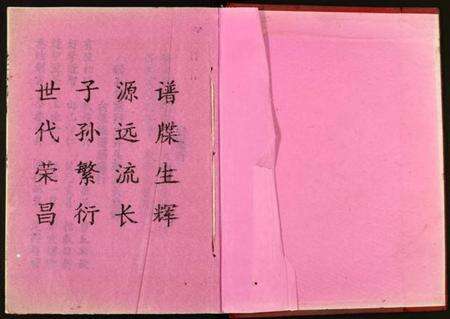 谱牒生辉
源远流长
子孙繁衍
世代荣昌